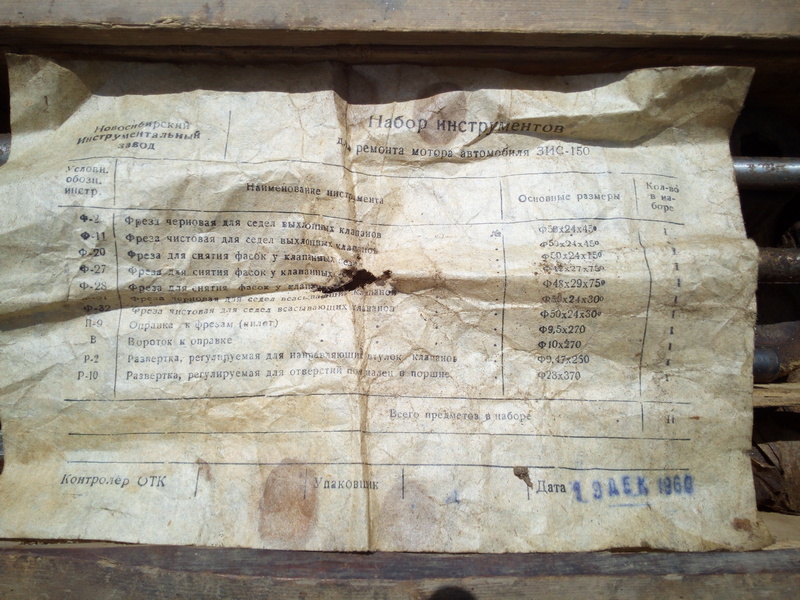 Новосибирский
Инструментальный
завод
Набор инструментов
для ремонта мотора автомобиля ЗИС-150
Условн.
обозн.
инстр.
Наименование инструмента
Основные размеры
Кол-во
в на-
боре
Ф-2 Фреза черновая для седел выхлопных клапанов
Ф-11 Фреза чистовая для седел выхлопных клапанов Ф50х24х45° 1
Ф-20 Фреза для снятия фасок у клапанных Ф50х24х15° 1
Ф-27 Фреза для снятия фасок у клапанных 1
Ф-28 Фреза для снятия фасок у клапанных Ф48х29х75° 1
Фреза черновая для седел всасывающих клапанов 1
Ф-32 Фреза чистовая для седел всасывающих клапанов Ф50х24х30° 1
П-9 Оправка к фрезам (пилот) Ф9,5х270 1
В Вороток к оправке Ф10х270 1
Р-2 Развертка, регулируемая для направляющих втулок клапанов Ф9,47х250 1
Р-10 Развертка, регулируемая для отверстий под палец в поршне Ф28х370 1
Всего предметов в наборе 11
Контролер ОТК
Упаковщик
Дата 19 ДЕК 1960